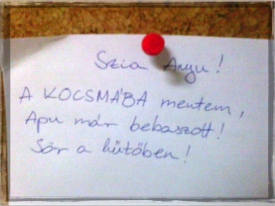 Szia Anyu!
A KOCSMÁBA mentem,
Apu már bebaszott!
Sör a hűtőben!